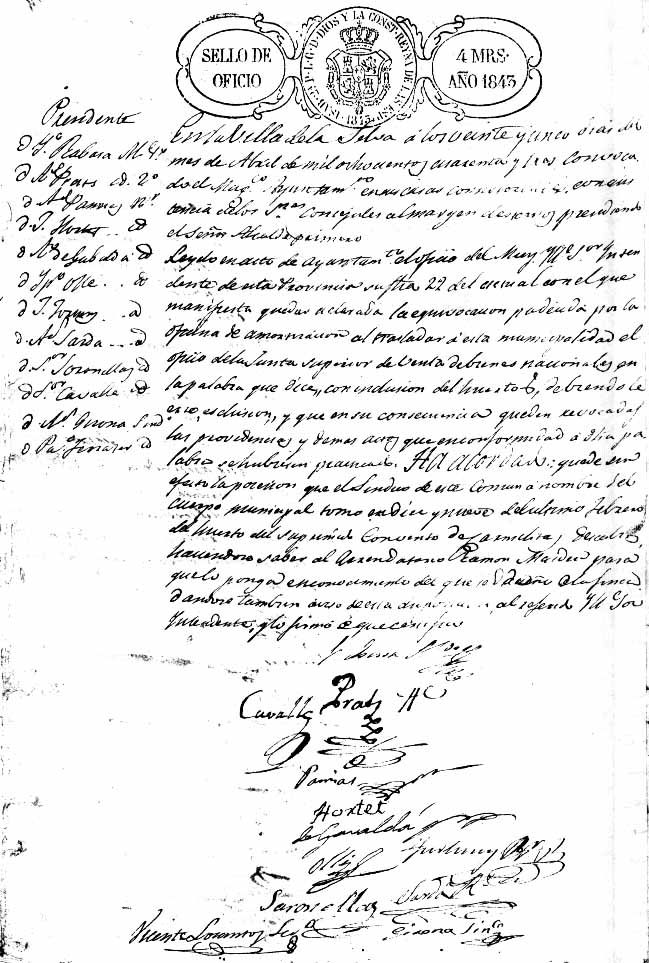 SELLO DE OFICIO
YSAB. 2ª P. L. G. D. DIOS Y LA CONST. REYNA DE LAS ESP. 1843
4 MRS. AÑO 1843
Presidente
Prats
Pamies
Hortet
de Gavaldá
Olle
Sardá
Soronellas
Cavalle
Girona Sind
En la Villa de la Selva á los veinte y cinco dias del
mes de Abril de mil ochocientos cuarenta y tres convoca
do el Mag.co Ayuntam.to en sus casas consistoriales, con asis
tencia de los S.res Concejales al margen descritos presidiendo
el Señor Alcalde primero
Leydo en acto de Ayuntam.to el oficio del Muy Ill.e S.or Inten
dente de esta Provincia su fha 22 del actual con el que
manifiesta quedar aclarada la equivocacion padecida por la
oficina de amortizacion al trasladar á esta municipalidad el
oficio de la Junta superior de Venta de bienes nacionales en
la palabra que dice, con inclusion del huerto, debiendo le
erse, esclusion, y que en su consecuencia queden revocadas
las providencias y demas actos que en conformidad á dha pa
labra se hubiesen practicado. Ha acordado: quede sin
efecto la posesion que el Sindico de este Comun á nombre del
cuerpo municipal tomo en diez y nueve del ultimo Febrero
del huerto del suprimido Convento de Carmelitas Descalzos,
haciendose saber al Arrendatario Ramon Masdeu para
que lo ponga en conocimiento del que se dueño de la finca
dandose tambien aviso de esta disposicion al referido Ill.e S.or
Intendente, y lo firmó de que certifico
Cavalle Prats
Pamias
Hortet
de Gavaldá
Olle
Soronellas Sardá
Vicente Lorano Girona Sin.co